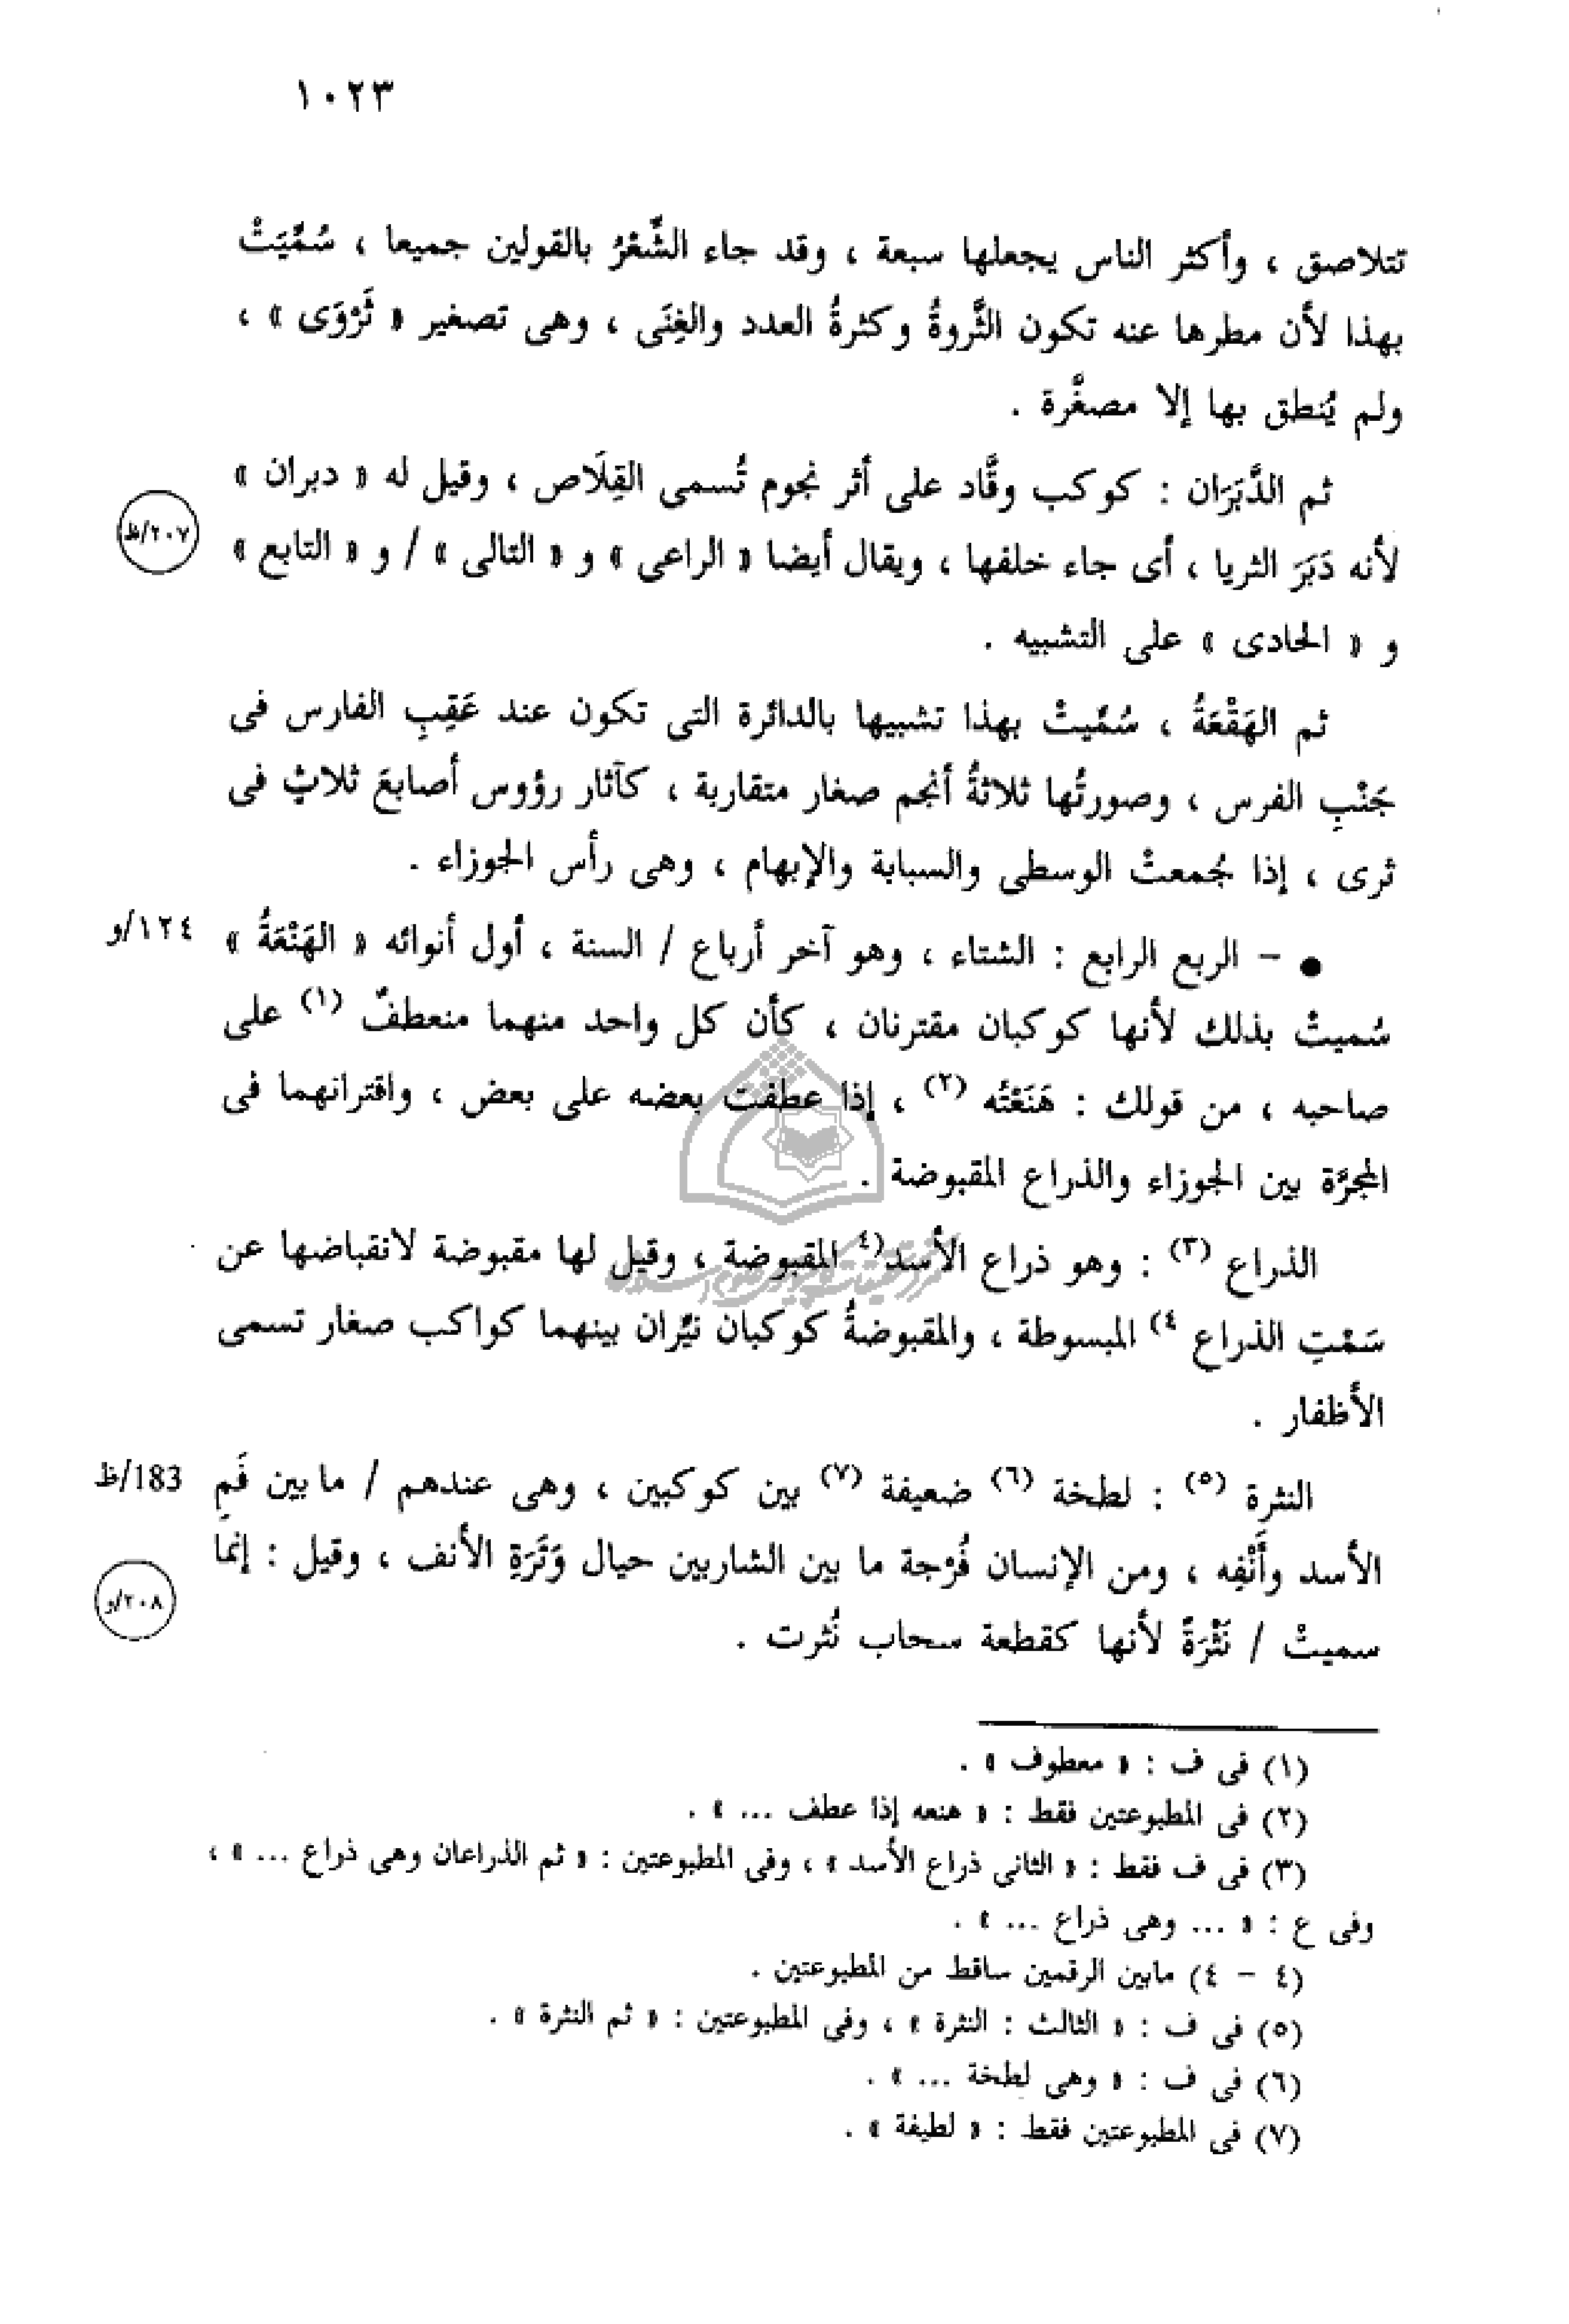 ١٠٢٣
تتلاصق ، وأكثر الناس يجعلها سبعة ، وقد جاء الشِّعْرُ بالقولين جميعا ، سُمِّيَتْ
بهذا لأن مطرها عنه تكون الثَّروةُ وكثرةُ العدد والغِنَى ، وهى تصغير « ثَرْوَى » ،
ولم يُنطق بها إلا مصغَّرة .
ثم الدَّبَرَان : كوكب وقَّاد على أثر نجوم تُسمى القِلَاص ، وقيل له « دبران »
لأنه دَبَرَ الثريا ، أى جاء خلفها ، ويقال أيضا « الراعى » و « التالى » / و « التابع »
٢٠٧/ظ
و « الحادى » على التشبيه .
ثم الهَقْعَةُ ، سُمِّيتْ بهذا تشبيها بالدائرة التى تكون عند عَقِبِ الفارس فى
جَنْبِ الفرس ، وصورتُها ثلاثةُ أنجم صغار متقاربة ، كآثار رؤوس أصابعَ ثلاثٍ فى
ثرى ، إذا جُمعتْ الوسطى والسبابة والإبهام ، وهى رأس الجوزاء .
● – الربع الرابع : الشتاء ، وهو آخر أرباع / السنة ، أول أنوائه « الهَنْعَةُ »
١٢٤/و
سُميتْ بذلك لأنها كوكبان مقترنان ، كأن كل واحد منهما منعطفٌ (١) على
صاحبه ، من قولك : هَنَعْتُه (٢) ، إذا عطفت بعضه على بعض ، واقترانهما فى
المجرَّة بين الجوزاء والذراع المقبوضة .
الذراع (٣) : وهو ذراع الأسد (٤ المقبوضة ، وقيل لها مقبوضة لانقباضها عن
سَمْتِ الذراع ٤) المبسوطة ، والمقبوضةُ كوكبان نيِّران بينهما كواكب صغار تسمى
الأظفار .
النثرة (٥) : لطخة (٦) ضعيفة (٧) بين كوكبين ، وهى عندهم / مابين فَمِ
183/ظ
الأسد وأَنْفِه ، ومن الإنسان فُرْجة ما بين الشاربين حيال وَتَرَةِ الأنف ، وقيل : إنما
٢٠٨/و
سميتْ / نَثْرَةً لأنها كقطعة سحاب نُثرت .
(١) فى ف : « معطوف » .
(٢) فى المطبوعتين فقط : « هنعه إذا عطف ... » .
(٣) فى ف فقط : « الثانى ذراع الأسد » ، وفى المطبوعتين : « ثم الذراعان وهى ذراع ... » ،
وفى ع : « ... وهى ذراع ... » .
(٤ – ٤) مابين الرقمين ساقط من المطبوعتين .
(٥) فى ف : « الثالث : النثرة » ، وفى المطبوعتين : « ثم النثرة » .
(٦) فى ف : « وهى لطخة ... » .
(٧) فى المطبوعتين فقط : « لطيفة » .